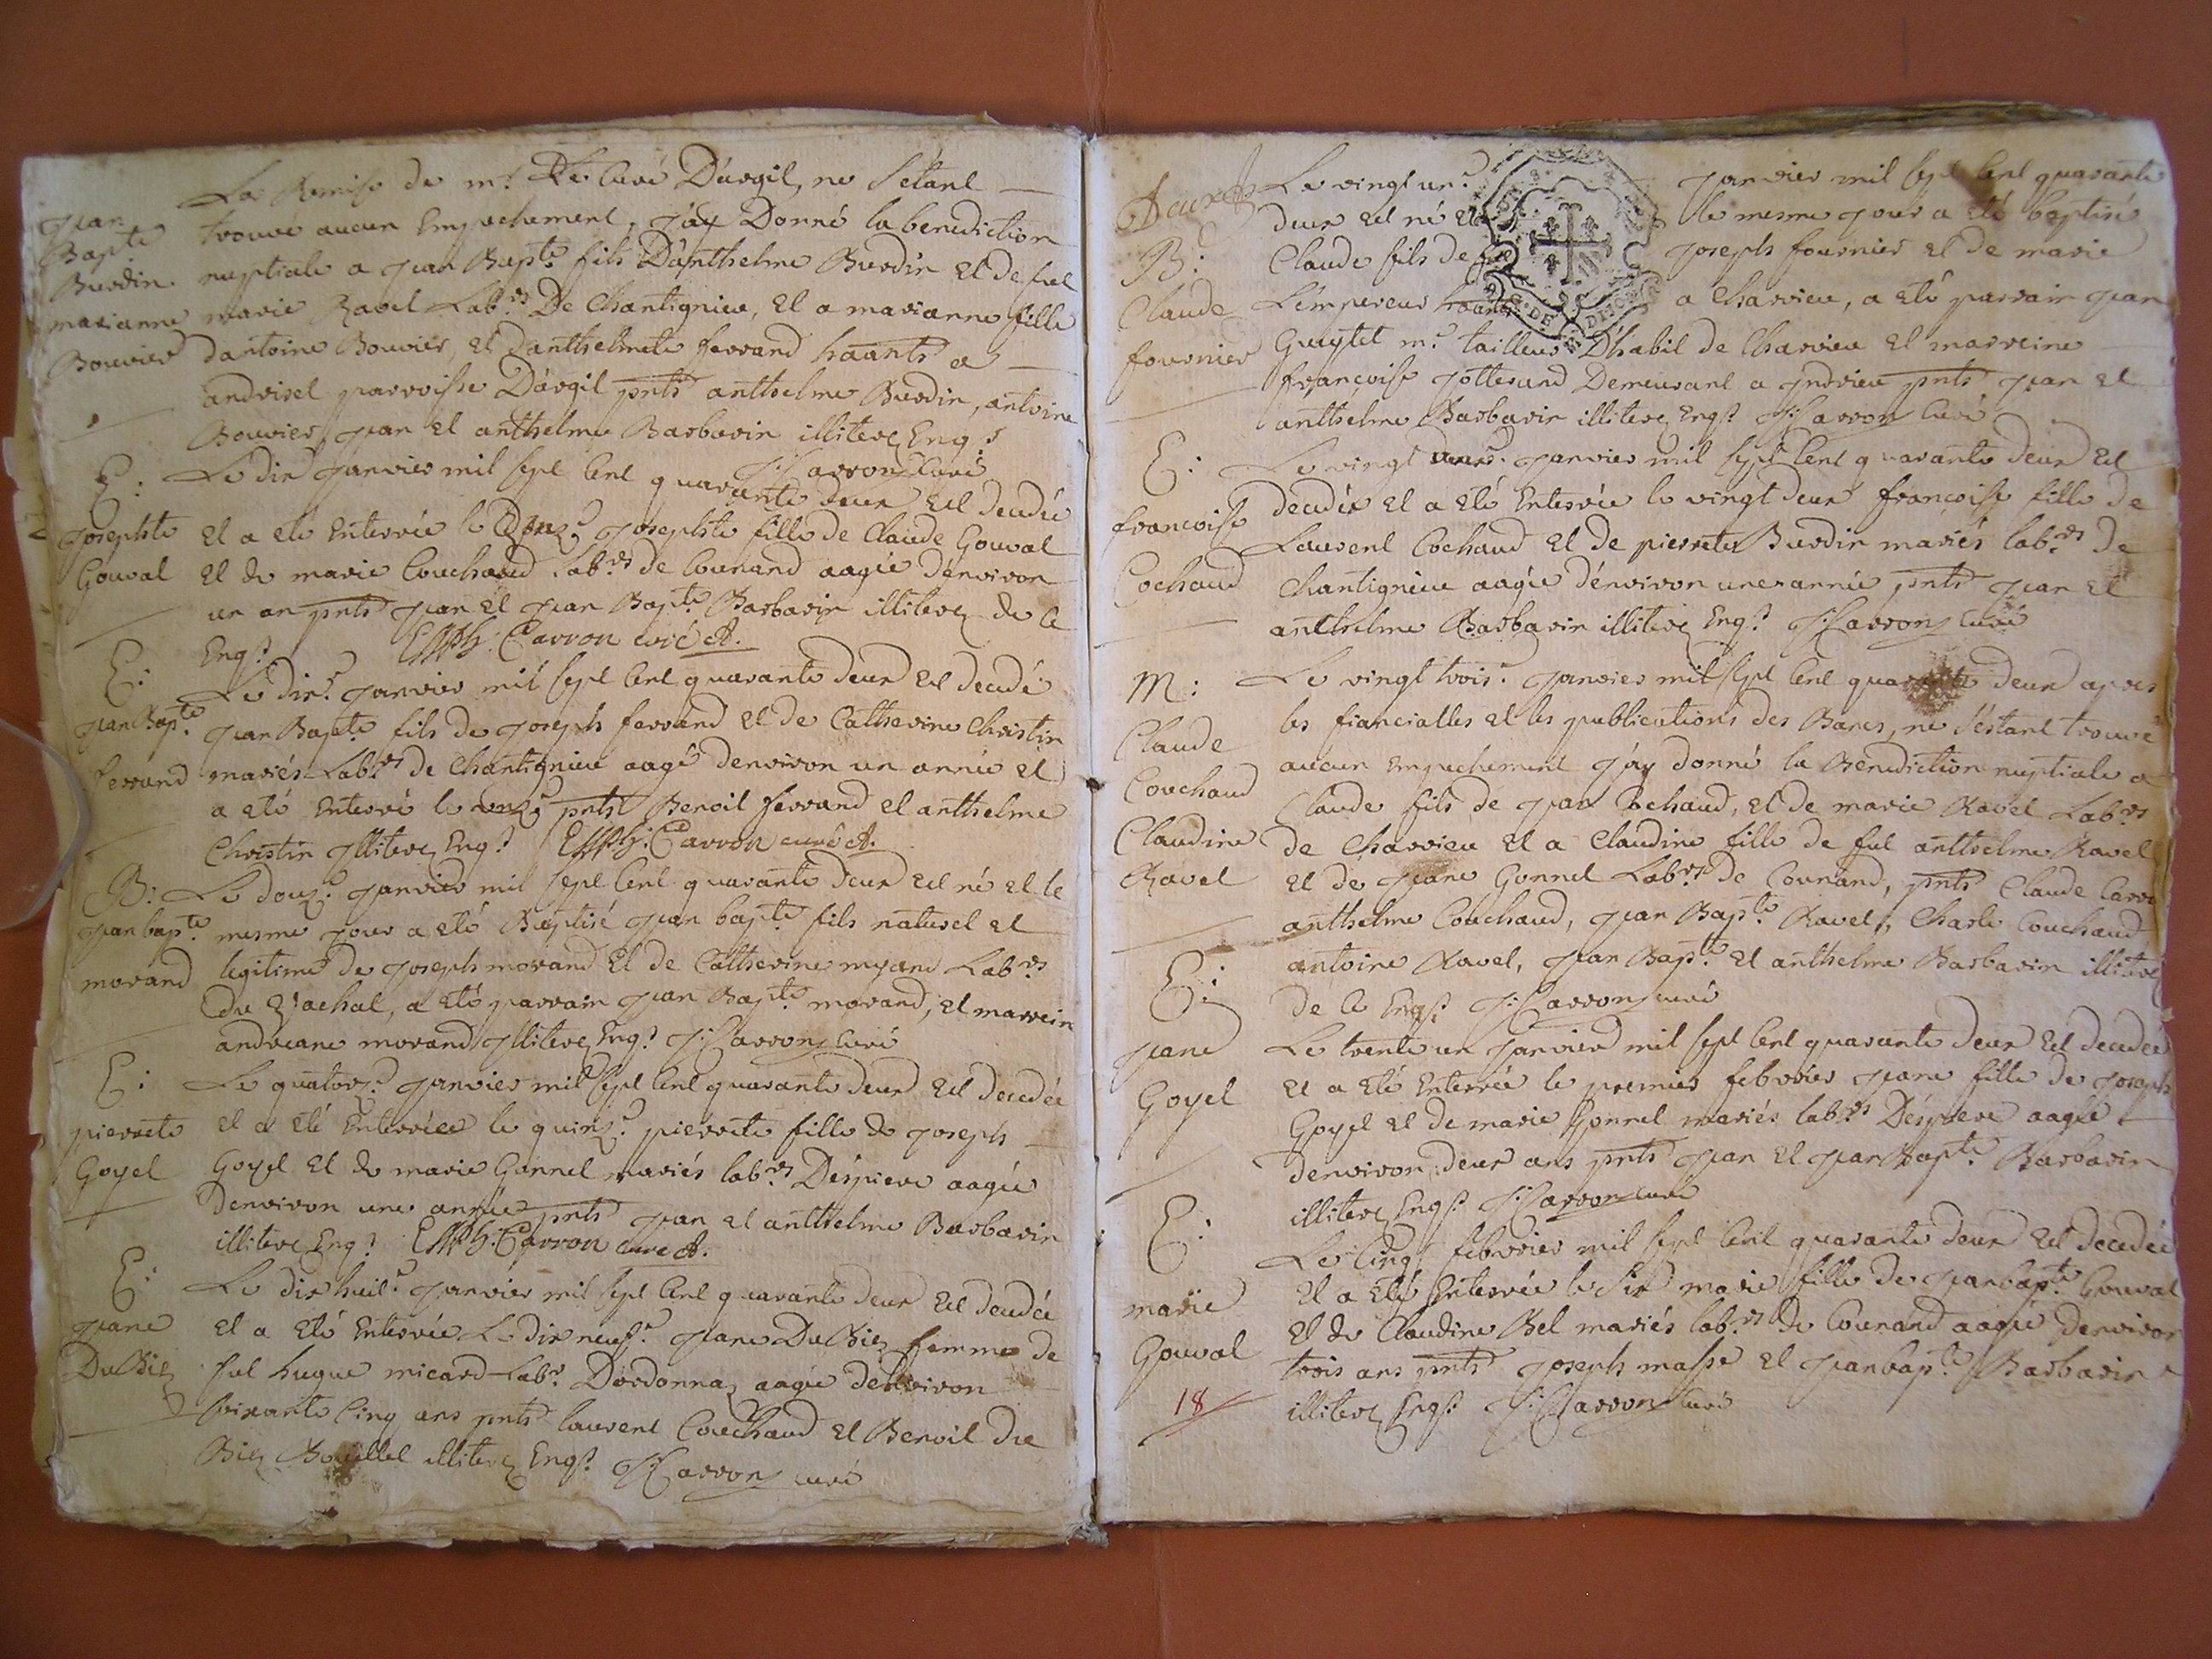 La Remise de mr. Le Curé D'argil, ne s'étant
Jean
Bapte trouvé aucun Empechement, j'ay Donné la benediction
Burdin nuptiale a jean Bapte fils D'anthelme Burdin et de fut
marianne marie Ravel Labrs De Chantignieu, et a marianne fille
Bouvier dantoine Bouvier, et danthelmete ferrand haants a
andrisel parroisse D'argil pnts anthelme Burdin, antoine
Bouvier, jean et anthelme Barbarin illiterez Enqs
J: Carron curé
E: Le dix janvier mil sept cent quarante deux est decedée
josephte et a eté Enterrée le Onze josephte fille de Claude Gouval
Gouval et de marie Couchaud Labrs de Counand aagée d'environ
un an pnts jean et jean Bapte Barbarin illiterez de ce
Enqs J: Carron curé
E: Le dixe janvier mil sept cent quarante deux est decedé
jean Bapte jean Bapte fils de joseph ferrand et de Catherine Christin
ferrand mariés Labrs de Chantignieu aagé denviron un année et
a eté Enterré le onze pnts Benoit ferrand et anthelme
Christin jlliterez Enqs J: Carron curé
B: Le douze janvier mil sept cent quarante deux est né et le
jean bapte mesme jour a eté Baptisé jean bapte fils naturel et
morand legitime de joseph morand et de Catherine Labrs
du a eté parrain jean Bapte morand, et marrein
andreane morand jlliterez Enqs J: Carron curé
E: Le quatorze janvier mil sept cent quarante deux est decedée
pierrete et a eté Enterrée le quinze pierrete fille de joseph
Goyel Goyel et de marie Gonnel mariés labrs D'espiere aagée
denviron une année pnts jean et anthelme Barbarin
illiterez Enqs J: Carron curé
E: Le dix huite janvier mil sept cent quarante deux est decedée
jeane et a eté Enterrée Le dix neufe jeane DuBiez femme de
DuBiez fut hugue micard Labr Dordonnaz aagée denviron
soixante cinq ans pnts laurent Couchaud et Benoit du
Biez illiterez Enqs J: Carron curé
Le vingt une janvier mil sept cent quarante
deux est né et le mesme jour a eté baptisé
B: Claude fils de joseph fournier et de marie
Claude L'empereur haants a Charvieu, a eté parrain jean
fournier Guytet me tailleur D'habit de Charvieu et marreine
françoise jotterand Demeurant a jndrieu pnts jean et
anthelme Barbarin illiterez Enqs J: Carron curé
E: Le vingt janvier mil sept cent quarante deux est
françoise decedée et a eté Enterrée le vingt deux françoise fille de
Cochaud Laurent Cochaud et de pierrete Burdin mariés labrs de
Chantignieu aagée d'environ une année pnts jean et
anthelme Barbarin illiterez Enqs J: Carron curé
M: Le vingt troise janvier mil sept cent quarante deux apres
les fiancialles et les publications des Bancs, ne s'étant trouvé
Claude aucun empechement j'ay donné la Benediction nuptiale a
Couchaud Claude fils de jean Cochaud, et de marie Ravel Labrs
Claudine de Charvieu et a Claudine fille de fut anthelme Ravel
Ravel et de jeane Gonnel Labrs de Counand, pnts Claude
anthelme Couchaud, jean Bapte Ravel, Charle Couchaud
antoine Ravel, jean Bapte et anthelme Barbarin illiterez
de ce Enqs J: Carron curé
E: Le trente un janvier mil sept cent quarante deux est decedée
jeane et a eté Enterrée le premier febvrier jeane fille de joseph
Goyel Goyel et de marie Gonnel mariés labrs D'espiere aagée
denviron deux ans pnts jean et jean Bapte Barbarin
illiterez Enqs J: Carron curé
E: Le Cinq febvrier mil sept cent quarante deux est decedée
marie et a eté Enterrée le Six marie fille de jean bapte Gouval
Gouval et de Claudine Bel mariés labrs de Counand aagée denviron
trois ans pnts joseph masse et jean bapte Barbarin
18 illiterez Enqs J: Carron curé